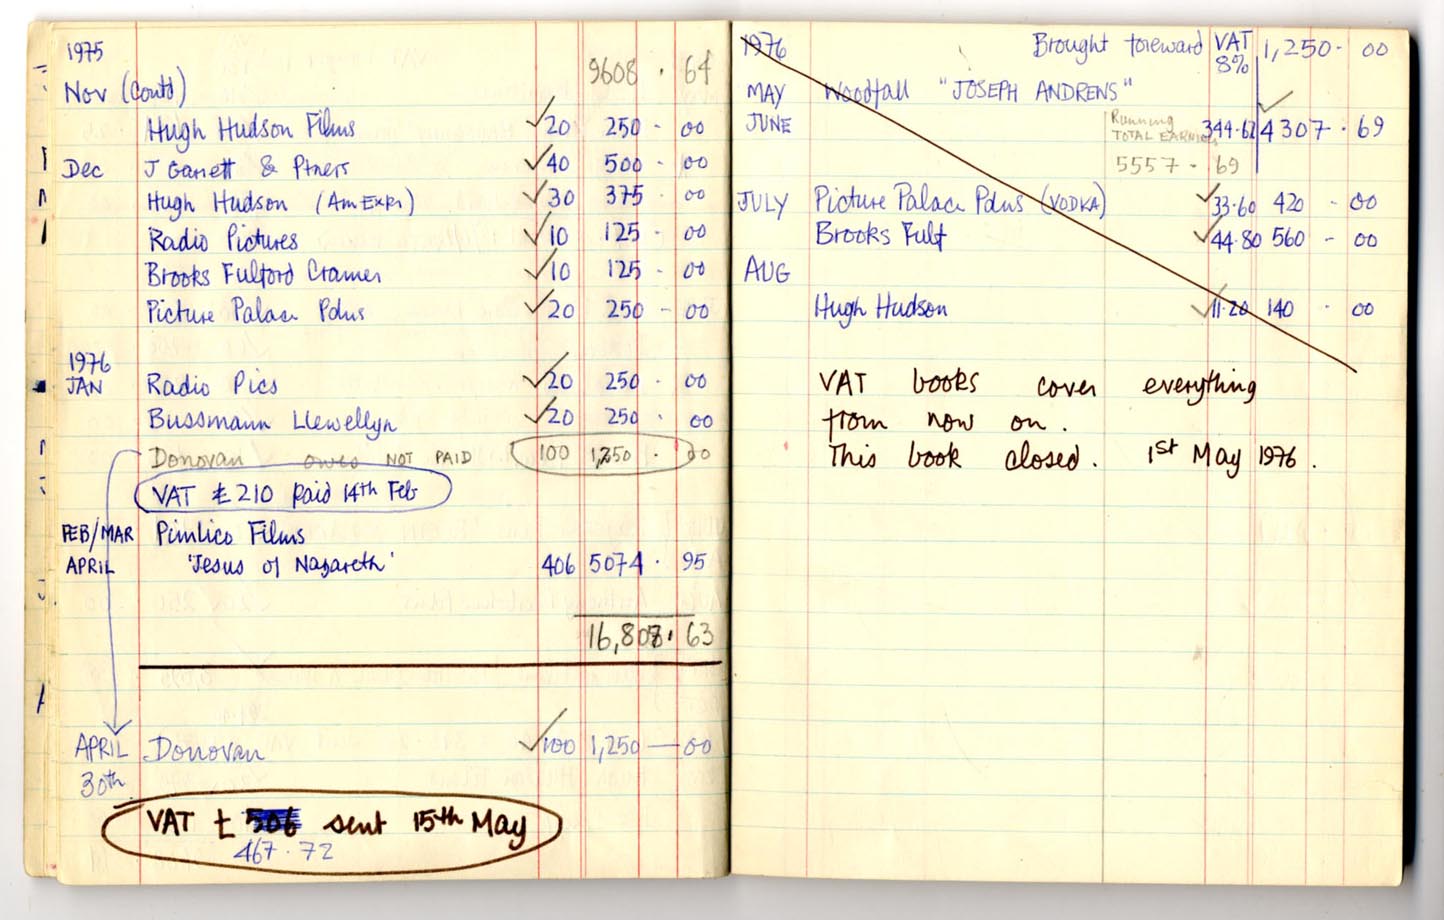 1975
9608 . 64
Nov (Contd)
Hugh Hudson Films ✓20 250 - 00
Dec J Garrett & Ptners ✓40 500 - 00
Hugh Hudson (Am Expr) ✓30 375 - 00
Radio Pictures ✓10 125 - 00
Brooks Fulford Cramer ✓10 125 - 00
Picture Palace Pdns ✓20 250 - 00
1976
JAN Radio Pics ✓20 250 - 00
Bussmann Llewellyn ✓20 250 . 00
Donovan owes NOT PAID 100 1,250 . 00
VAT £210 paid 14th Feb
FEB/MAR Pimlico Films
APRIL 'Jesus of Nazareth' 406 5074 . 95
16,808 . 63
APRIL Donovan ✓100 1,250 — 00
30th
VAT £ 506 sent 15th May
467.72
1976 Brought foreward VAT 1,250 - 00
8%
MAY Woodfall "JOSEPH ANDREWS"
JUNE Running TOTAL EARNINGS 344.62 4307 . 69
5557 - 69
JULY Picture Palace Pdns (VODKA) ✓33.60 420 - 00
Brooks Fulf ✓44.80 560 - 00
AUG
Hugh Hudson ✓11.20 140 - 00
VAT books cover everything
from now on.
This book closed. 1st May 1976.